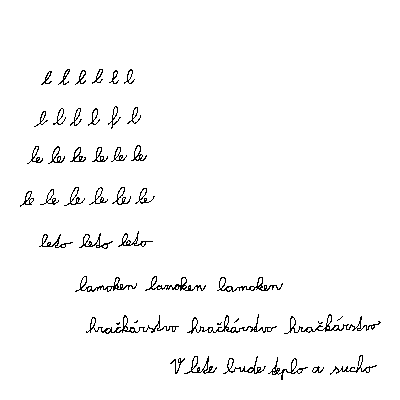 l l l l l l
l l l l f l
le le le le le le
le le le le le le
leto leto leto
lamoken lamoken lamoken
hračkárstvo hračkárstvo hračkárstvo
V lete bude teplo a sucho